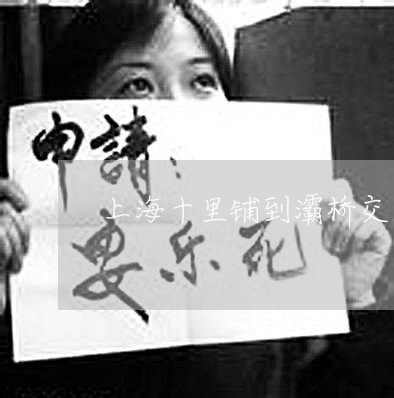 申請：
上海十里铺到灞桥交
安乐死